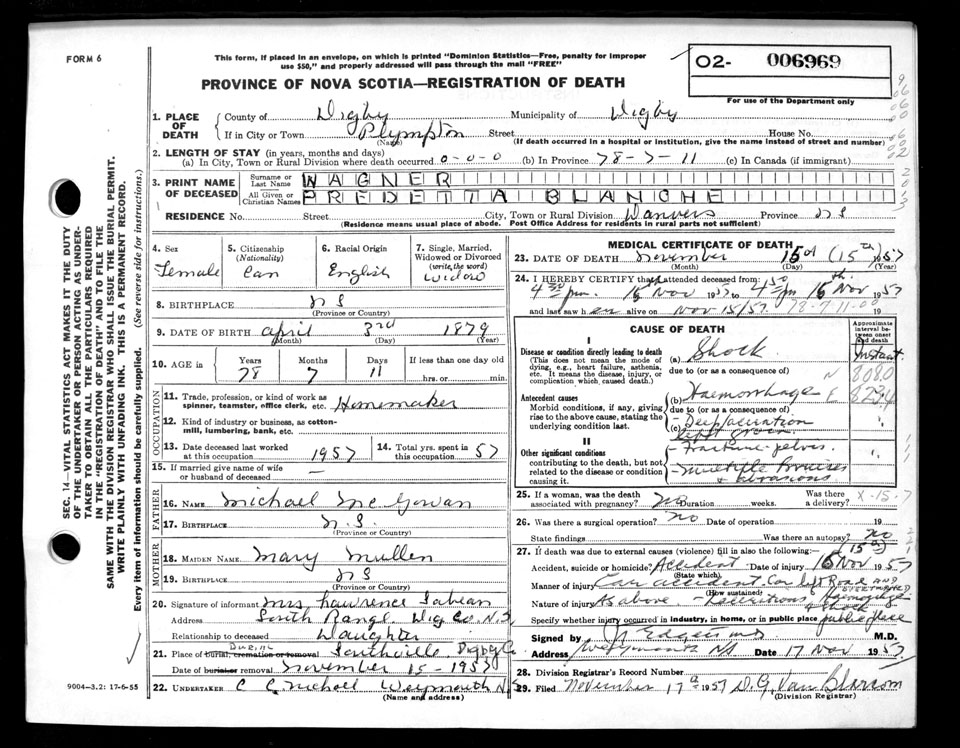 FORM 6
This form, if placed in an envelope, on which is printed "Dominion Statistics—Free, penalty for improper
use $50," and properly addressed will pass through the mail "FREE"
PROVINCE OF NOVA SCOTIA—REGISTRATION OF DEATH
02- 006969
For use of the Department only
1. PLACE OF DEATH
County of Digby Municipality of Digby
If in City or Town Plympton Street House No.
(Name) (If death occurred in a hospital or institution, give the name instead of street and number)
2. LENGTH OF STAY (in years, months and days)
(a) In City, Town or Rural Division where death occurred 0-0-0 (b) In Province 78-7-11 (c) In Canada (if immigrant)
3. PRINT NAME OF DECEASED
Surname or Last Name WAGNER
All Given or Christian Names PREDETTA BLANCHE
RESIDENCE No. Street City, Town or Rural Division Danvers Province N S
(Residence means usual place of abode. Post Office Address for residents in rural parts not sufficient)
4. Sex Female
5. Citizenship (Nationality) Can
6. Racial Origin English
7. Single, Married, Widowed or Divorced (write the word) Widow
8. BIRTHPLACE N S
(Province or Country)
9. DATE OF BIRTH April 3rd 1879
(Month) (Day) (Year)
10. AGE in Years 78 Months 7 Days 11 If less than one day old hrs. or min.
OCCUPATION
11. Trade, profession, or kind of work as spinner, teamster, office clerk, etc. Homemaker
12. Kind of industry or business, as cotton-mill, lumbering, bank, etc.
13. Date deceased last worked at this occupation 1957
14. Total yrs. spent in this occupation 57
15. If married give name of wife or husband of deceased —
FATHER
16. Name Michael Mc Gowan
17. Birthplace N.S.
(Province or Country)
MOTHER
18. Maiden Name Mary Mullen
19. Birthplace N S
(Province or Country)
20. Signature of informant Mrs Lawrence Sabean
Address South Range Dig Co. N.S
Relationship to deceased Daughter
21. Place of burial, cremation or removal Southville Digby Co
Date of burial or removal November 15-1957
22. Undertaker C C Nichols Weymouth N.S
(Name and address)
MEDICAL CERTIFICATE OF DEATH
23. DATE OF DEATH November 15th (15th) 1957
(Month) (Day) (Year)
24. I HEREBY CERTIFY that I attended deceased from:
4 30 pm. 15 Nov 1957 to 4 45 pm 15th Nov 1957
and last saw h er alive on Nov 15/57 19
78-7-11-00
CAUSE OF DEATH
Approximate interval between onset and death
I
Disease or condition directly leading to death (a) Shock Instant.
(This does not mean the mode of dying, e.g., heart failure, asthenia, etc. It means the disease, injury, or complication which caused death.)
due to (or as a consequence of) N 808.0
Antecedent causes (b) Haemorrhage E 823.4
Morbid conditions, if any, giving rise to the above cause, stating the underlying condition last.
due to (or as a consequence of)
(c) - Deep laceration left groin
II
Other significant conditions - Fracture pelvis
contributing to the death, but not related to the disease or condition causing it.
- Multiple bruises & abrasions
25. If a woman, was the death associated with pregnancy? No Duration weeks. Was there a delivery? X-15-7
26. Was there a surgical operation? No Date of operation 19
State findings Was there an autopsy? No
27. If death was due to external causes (violence) fill in also the following: (15th)
Accident, suicide or homicide? Accident Date of injury 15 Nov 1957
(State which)
Manner of injury Car accident. Car left Road and overturned
(How sustained)
Nature of injury As above - Lacerations Haemorrhage & shock
Specify whether injury occurred in industry, in home, or in public place public place
Signed by M.D.
Address Weymouth NS Date 17 Nov 1957
28. Division Registrar's Record Number
29. Filed November 17th 1957 D. G. Van Blarcom
(Division Registrar)
SEC. 14—VITAL STATISTICS ACT MAKES IT THE DUTY
OF THE UNDERTAKER OR PERSON ACTING AS UNDER-
TAKER TO OBTAIN ALL THE PARTICULARS REQUIRED
IN THE "REGISTRATION OF DEATH" AND TO FILE THE
SAME WITH THE DIVISION REGISTRAR WHO SHALL ISSUE THE BURIAL PERMIT.
WRITE PLAINLY WITH UNFADING INK. THIS IS A PERMANENT RECORD.
Every item of information should be carefully supplied. (See reverse side for instructions.)
9004-3.2: 17-6-55